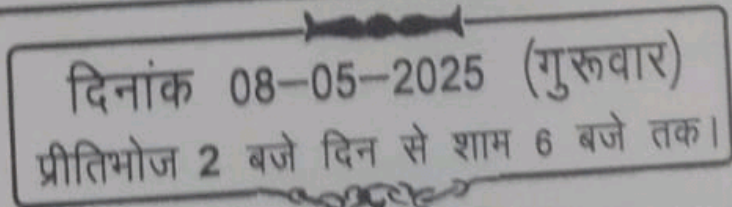 दिनांक 08–05–2025 (गुरूवार)
प्रीतिभोज 2 बजे दिन से शाम 6 बजे तक।